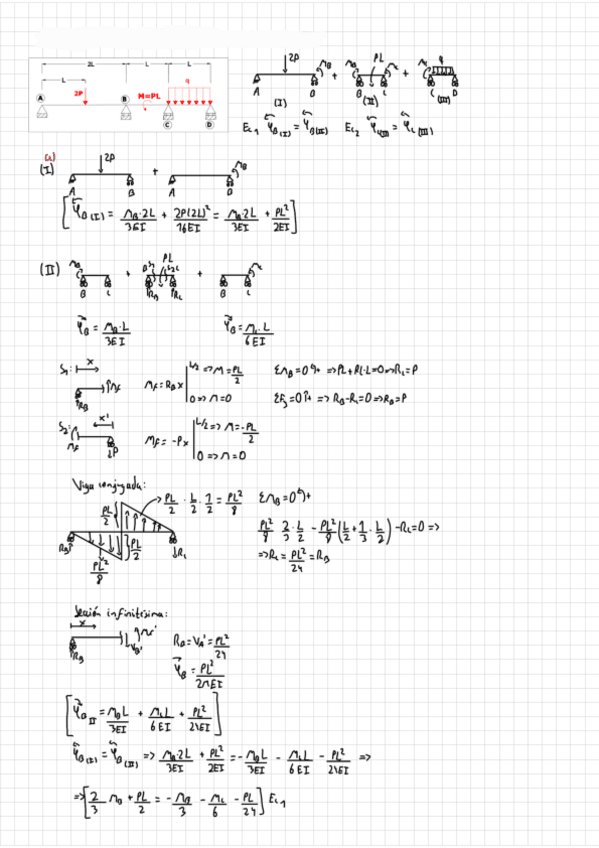 2L L L
L q
2P M=PL
A B C D
2P PL q
A (I) B B (II) C C (III) D
Ec1 φB(I) = φB(II) Ec2 φC(II) = φC(III)
a)
(I) 2P + MB
A B A B
[φB(I) = MB·2L/3EI + 2P(2L)²/16EI = MB·2L/3EI + PL²/2EI]
(II) MB + PL + MC
B C RB RC B C
φB = MB·L/3EI φB = MC·L/6EI
S1: x Mf = RB x | L/2 => M = PL/2 ΣMB=0 + => PL+RC·L=0 => RC=P
RB Mf 0 => M=0 ΣFy=0 + => RB-RC=0 => RB=P
S2: x' Mf = -Px | L/2 => M = -PL/2
Mf P 0 => M=0
Viga conjugada:
PL/2 PL/2 · L/2 · 1/2 = PL²/8 ΣMB=0 +
RB PL/2 RC PL²/8 · 2/3 · L/2 - PL²/8 (L/2 + 1/3 · L/2) - RC=0 =>
PL²/8 => RC = PL²/24 = RB
Sección infinitésima:
x M' RB = VA' = PL²/24
RB VB' φB = PL²/24EI
[φB II = MBL/3EI + MCL/6EI + PL²/24EI]
φB(I) = φB(II) => MB·2L/3EI + PL²/2EI = - MBL/3EI - MCL/6EI - PL²/24EI =>
=> [2/3 MB + PL/2 = - MB/3 - MC/6 - PL/24] Ec1